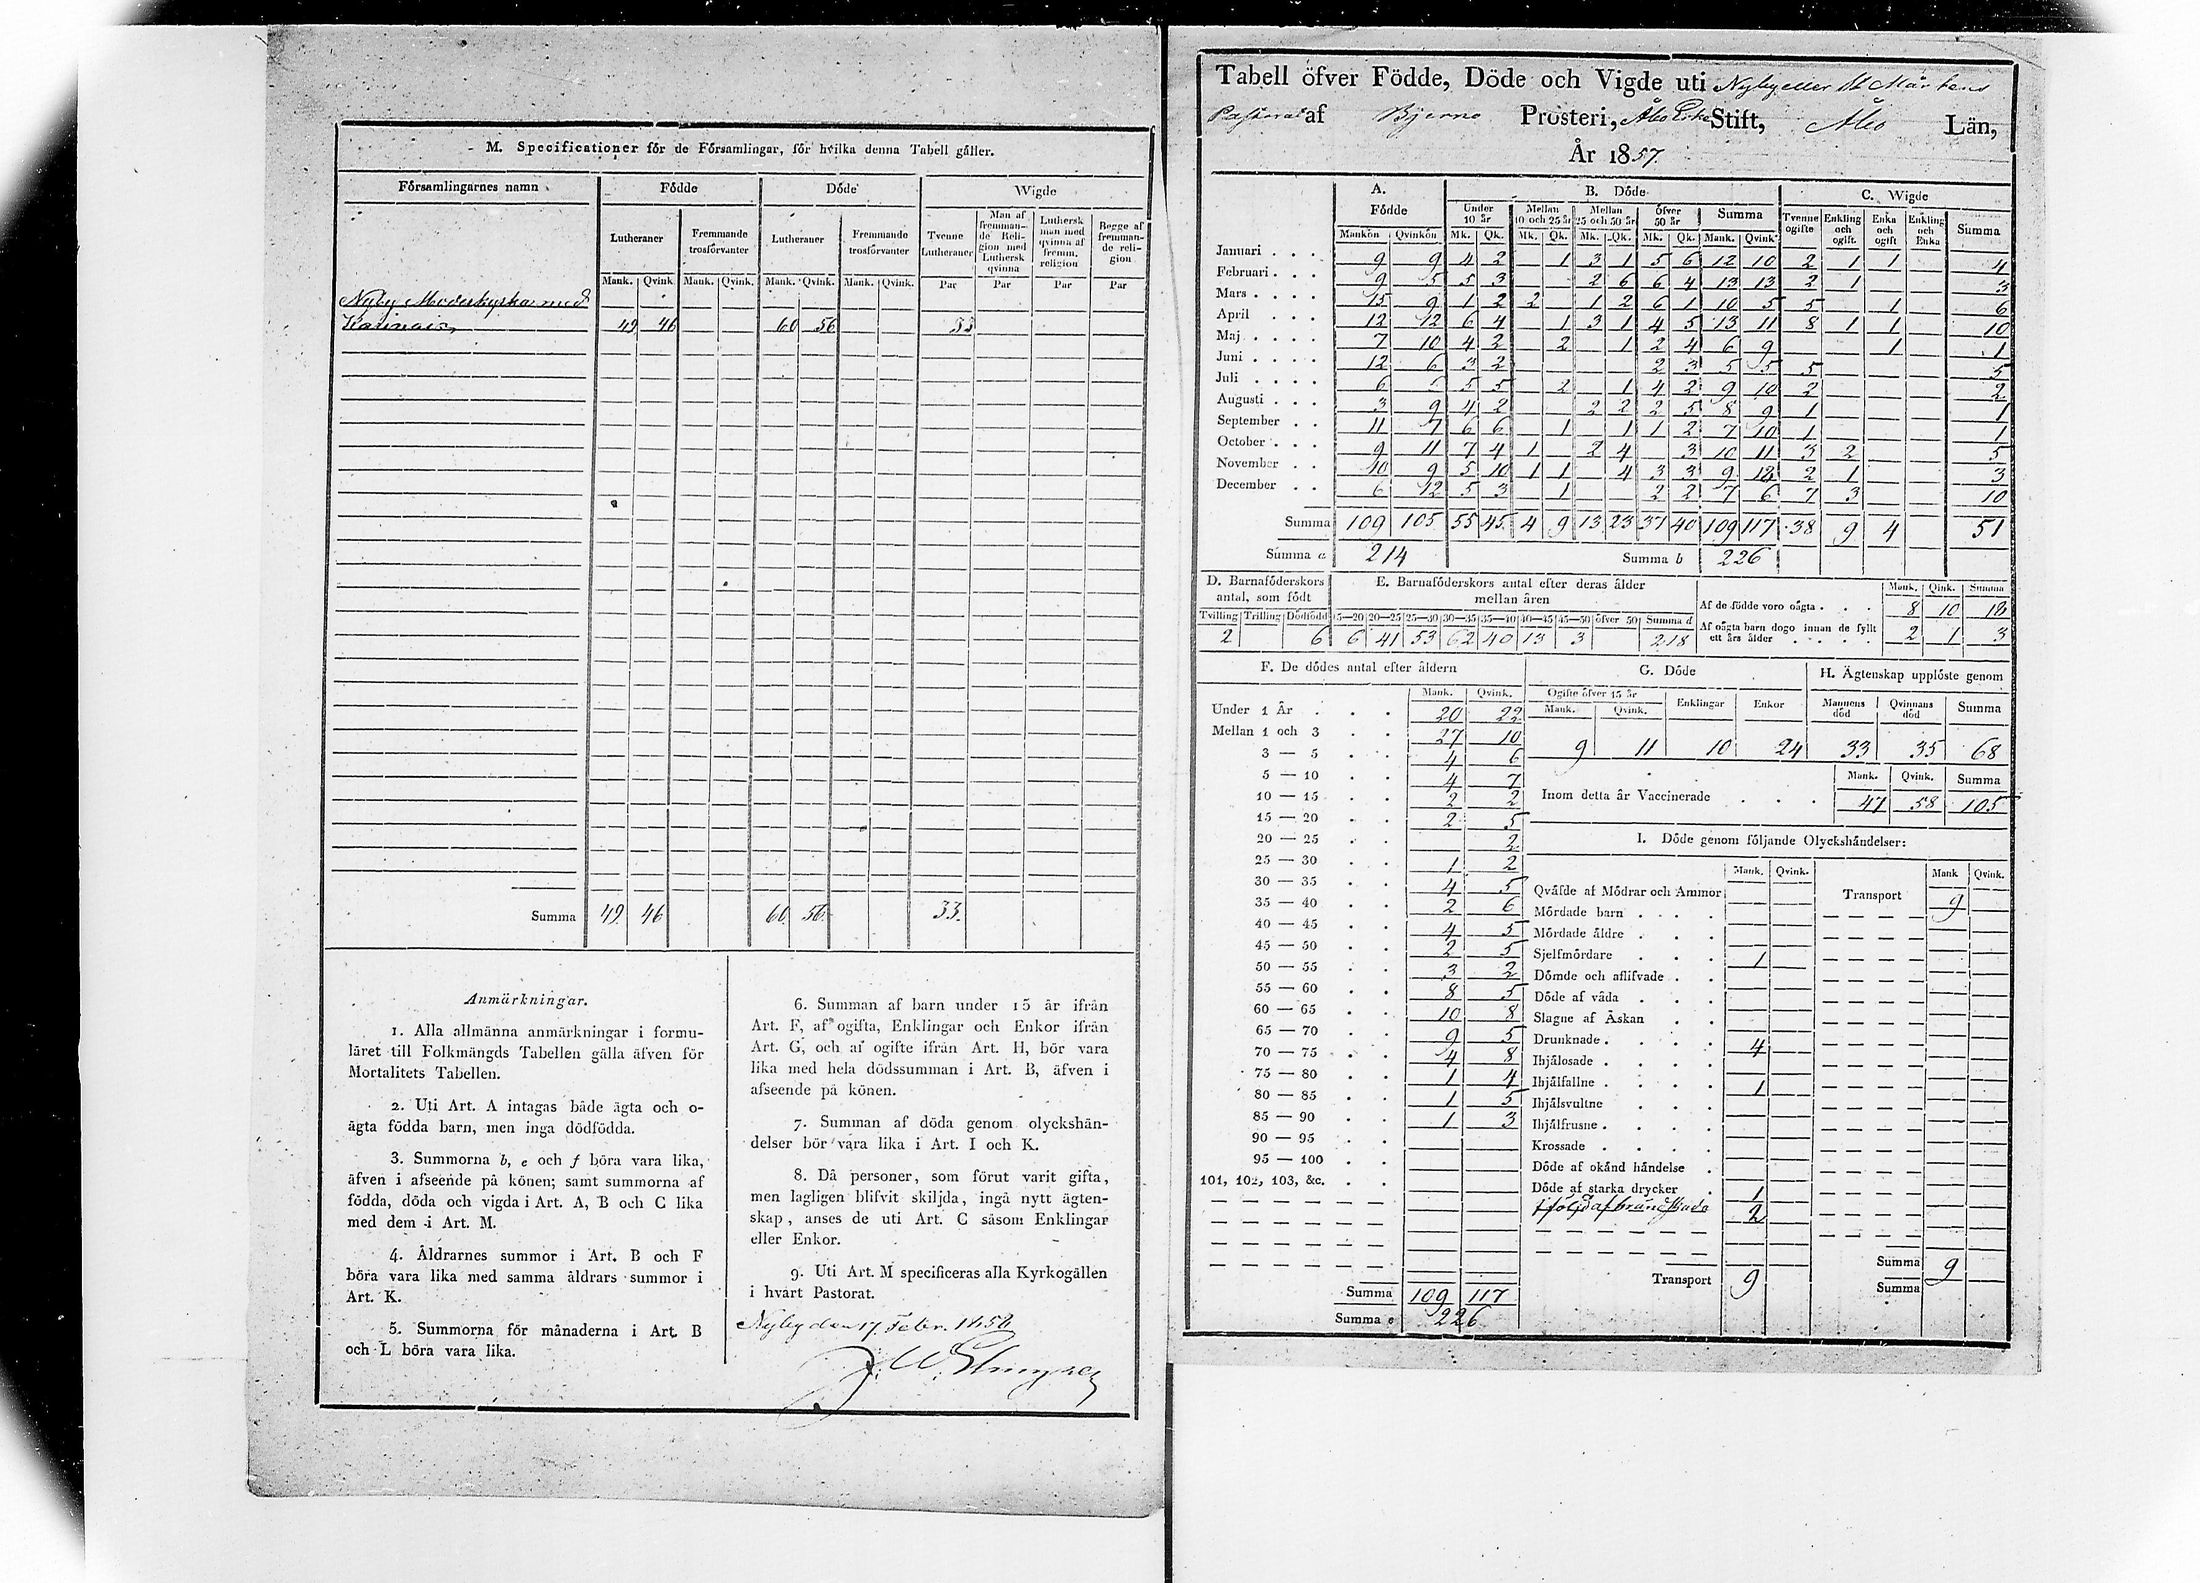 M. Specificationer för de Församlingar, för hvilka denna Tabell gäller.
Församlingarnes namn Födde Döde Wigde
Lutheraner Fremmande trosförvanter Lutheraner Fremmande trosförvanter Tvenne Lutheraner Man af fremmande Religion med Luthersk qvinna Luthersk man med qvinna af fremm. religion Begge af fremmande religion
Mank. Qvink. Mank. Qvink. Mank. Qvink. Mank. Qvink. Par Par Par Par
Nyby Moderkyrka med
49 46 60 56 33
Summa 49 46 60 56 33.
Anmärkningar.
1. Alla allmänna anmärkningar i formu-
läret till Folkmängds Tabellen gälla äfven för
Mortalitets Tabellen.
2. Uti Art. A intagas både ägta och o-
ägta födda barn, men inga dödfödda.
3. Summorna b, e och f böra vara lika,
äfven i afseende på könen; samt summorna af
födda, döda och vigda i Art. A, B och C lika
med dem i Art. M.
4. Åldrarnes summor i Art. B och F
böra vara lika med samma åldrars summor i
Art. K.
5. Summorna för månaderna i Art. B
och L böra vara lika.
6. Summan af barn under 15 år ifrån
Art. F, af ogifta, Enklingar och Enkor ifrån
Art. G, och af ogifte ifrån Art. H, bör vara
lika med hela dödssumman i Art. B, äfven i
afseende på könen.
7. Summan af döda genom olyckshän-
delser bör vara lika i Art. I och K.
8. Då personer, som förut varit gifta,
men lagligen blifvit skiljda, ingå nytt ägten-
skap, anses de uti Art. C såsom Enklingar
eller Enkor.
9. Uti Art. M specificeras alla Kyrkogällen
i hvart Pastorat.
Nyby den 17 Febr. 1858
Tabell öfver Födde, Döde och Vigde uti Nyby eller St Mårtens
Pastorat af Bjerno Prosteri, Åbo Erke Stift, Åbo Län,
År 1857.
A. Födde B. Döde C. Wigde
Under 10 år Mellan 10 och 25 år Mellan 25 och 50 år öfver 50 år Summa Tvenne ogifte Enkling och ogift. Enka och ogift Enkling och Enka Summa
Mankön Qvinkön Mk. Qk. Mk. Qk. Mk. Qk. Mk. Qk. Mank. Qvink.
Januari . . . 9 9 4 2 1 3 1 5 6 12 10 2 1 1 4
Februari . . . 9 5 5 3 2 6 6 4 13 13 2 1 3
Mars . . . . 15 9 1 2 2 1 2 6 1 10 5 5 1 6
April . . . 12 12 6 4 1 3 1 4 5 13 11 8 1 1 10
Maj . . . . 7 10 4 2 2 1 2 4 6 9 1 1
Juni . . . . 12 6 3 2 2 3 5 5 5 5
Juli . . . . 6 5 5 2 1 4 2 9 10 2 2
Augusti . . . 3 9 4 2 2 2 2 5 8 9 1 1
September . . 11 7 6 6 1 1 1 2 7 10 1 1
October . . . 9 11 7 4 1 2 4 3 10 11 3 2 5
November . . 10 9 5 10 1 1 4 3 3 9 18 2 1 3
December . . 6 12 5 3 1 2 2 7 6 7 3 10
Summa 109 105 55 45 4 9 13 23 37 40 109 117 38 9 4 51
Summa a 214 Summa b 226
D. Barnaföderskors antal, som födt
Tvilling Trilling Dödfödd
2 6
E. Barnaföderskors antal efter deras ålder mellan åren
15—20 20—25 25—30 30—35 35—40 40—45 45—50 öfver 50 Summa d
6 41 53 62 40 13 3 218
Mank. Qink. Summa
Af de födde voro oägta . . . 8 10 18
Af oägta barn dogo innan de fyllt
ett års ålder . . . . . 2 1 3
F. De dödes antal efter åldern
Mank. Qvink.
Under 1 År . . . 20 22
Mellan 1 och 3 . . 27 10
3 — 5 . . 4 6
5 — 10 . . 4 7
10 — 15 . . 2 2
15 — 20 . . 2 5
20 — 25 . . 2
25 — 30 . . 1 2
30 — 35 . . 4 5
35 — 40 . . 2 6
40 — 45 . . 4 5
45 — 50 . . 2 5
50 — 55 . . 3 2
55 — 60 . . 8 5
60 — 65 . . 10 8
65 — 70 . . 9 5
70 — 75 . . 4 8
75 — 80 . . 1 4
80 — 85 . . 1 5
85 — 90 . . 1 3
90 — 95 . .
95 — 100 . .
101, 102, 103, &c. . .
Summa 109 117
Summa e 226
G. Döde
Ogifte öfver 15 år Enklingar Enkor
Mank. Qvink.
9 11 10 24
H. Ägtenskap upplöste genom
Mannens död Qvinnans död Summa
33 35 68
Mank. Qvink. Summa
Inom detta år Vaccinerade . . . 47 58 105
I. Döde genom följande Olyckshändelser:
Mank. Qvink. Mank Qvink.
Qväfde af Mödrar och Ammor Transport 9
Mördade barn . . . .
Mördade äldre . . .
Sjelfmördare . . 1
Dömde och aflifvade . .
Döde af våda . . .
Slagne af Åskan . .
Drunknade . . . . 4
Ihjälosade . . . .
Ihjälfallne . . . . 1
Ihjälsvultne . . .
Ihjälfrusne . . . .
Krossade . . . .
Döde af okänd händelse .
Döde af starka drycker . 1
i följd af brandskada 2
Summa 9
Transport 9 Summa